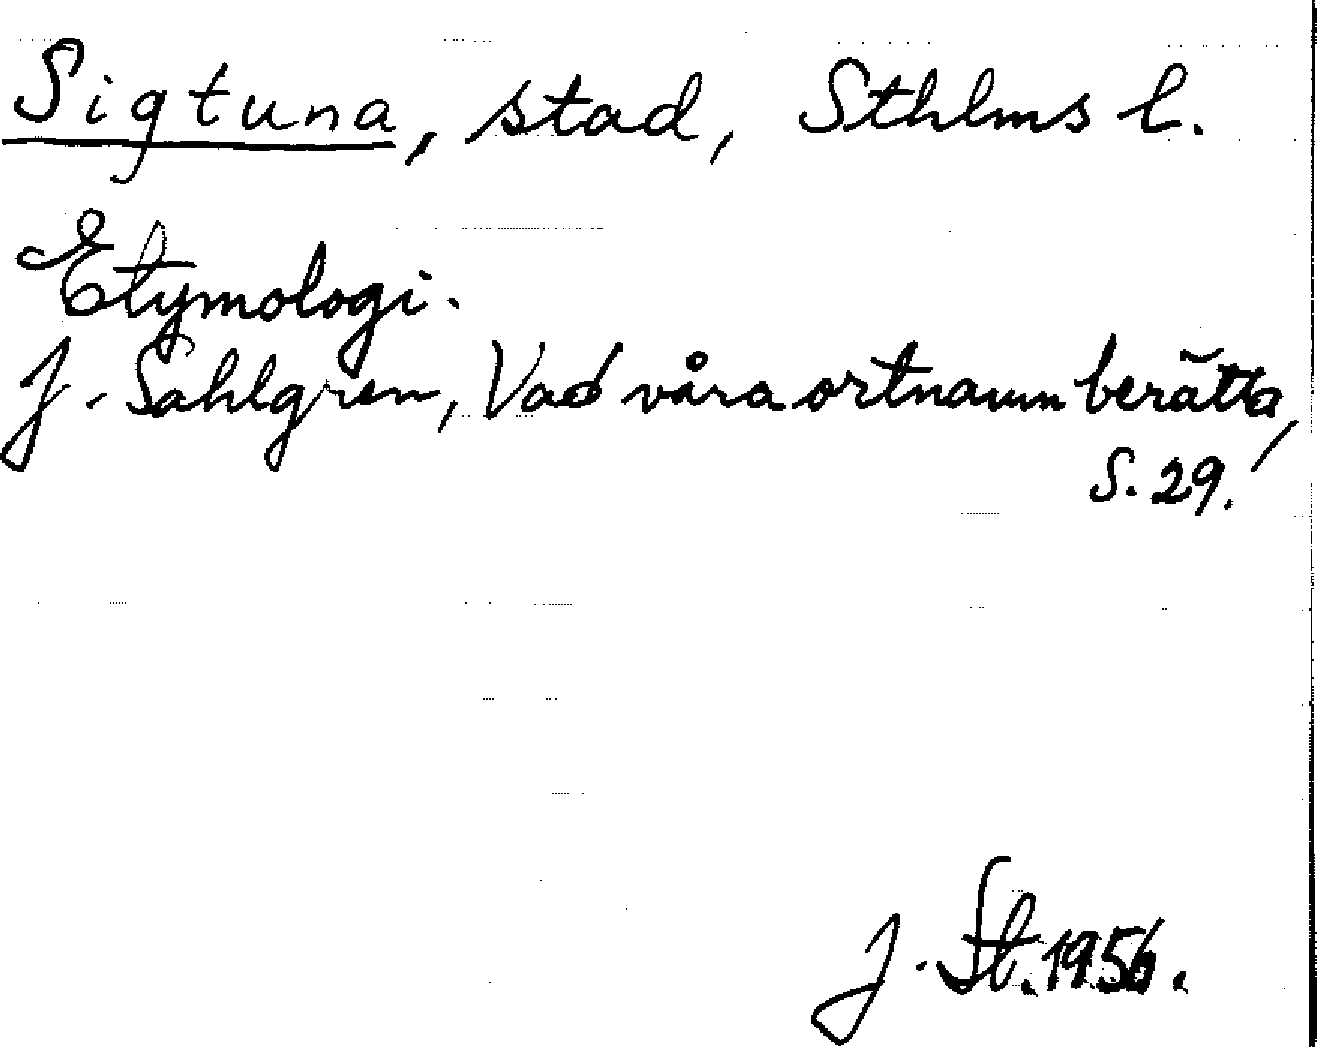 Sigtuna, stad, Sthlms l.
Etymologi.
J. Sahlgren, Vad våra ortnamn berätta,
s. 29.
J. St. 1956.